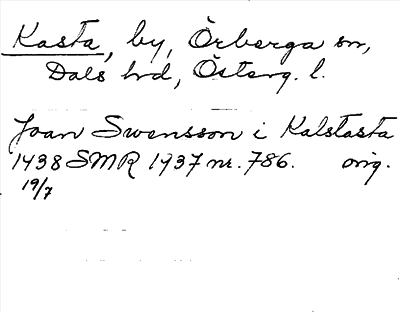 Kasta, by, Örberga sn,
Dals hd, Österg. l.
Joan Swensson i Kalstasta
1438 SMR 1937 nr. 786. orig.
19/7